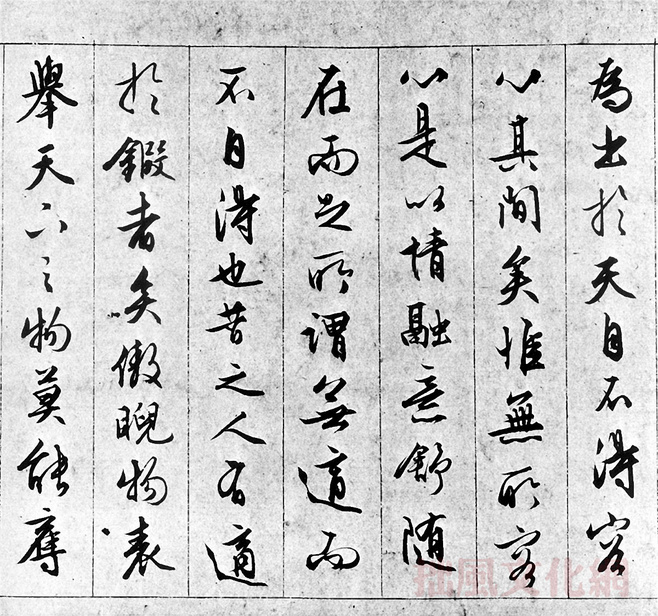 為出於天自不得容
心其間矣惟無所容
心是以情融意舒随
在而足所謂無適而
不自得也昔之人有適
於鍛者矣傲睨物表
舉天下之物莫能奪
風文化網